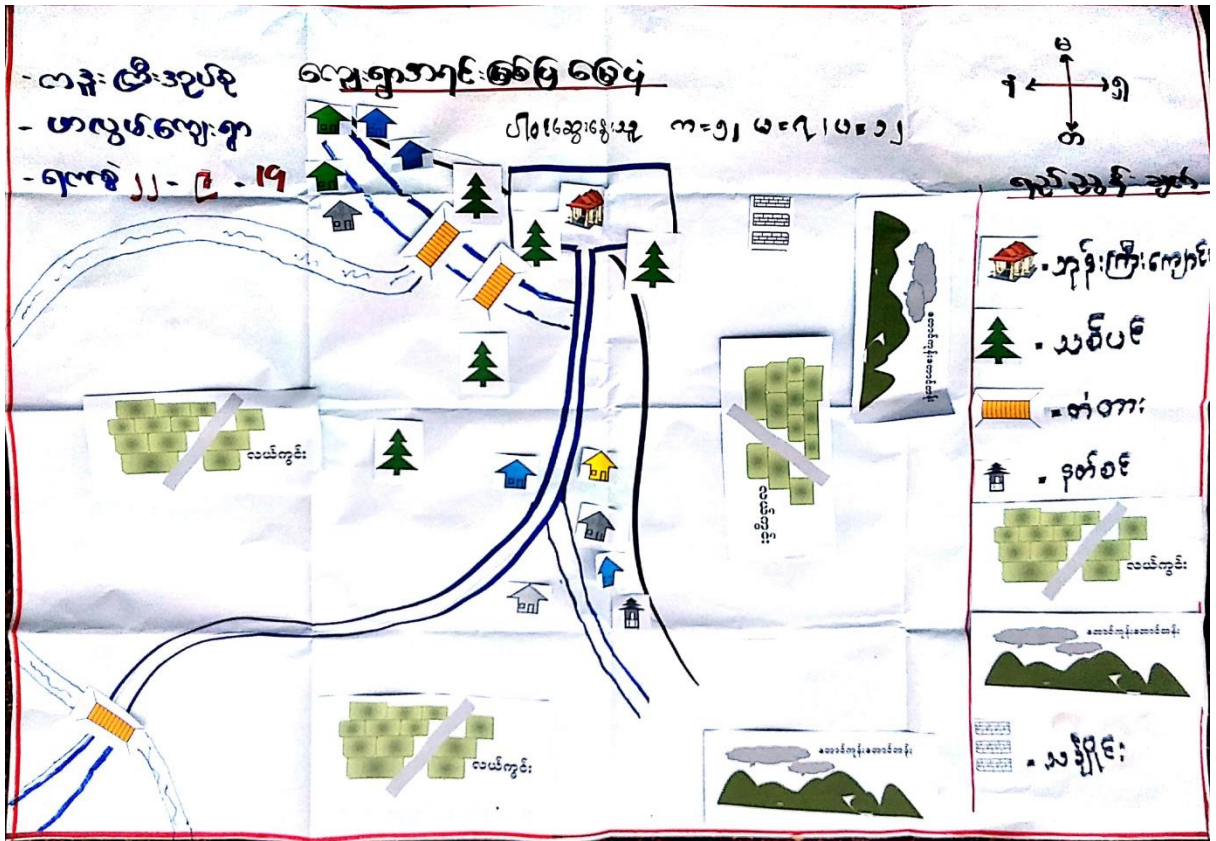 - ကဒူးကြီးအုပ်စု
- ဟာလွယ်ကျေးရွာ
- ရက်စွဲ ၂၂ - ၉ - 19
ကျေးရွာအရင်းအမြစ်ပြ မြေပုံ
ပါဝင်ဆွေးနွေးသူ က = ၅၂ မ = ၇၂
မ
န
ရှ
တ
ရည်ညွှန်းချက်
= ဘုန်းကြီးကျောင်း
= သစ်ပင်
= တံတား
= နတ်စင်
လယ်ကွင်း
တောင်ကုန်းတောင်တန်း
= သင်္ချိုင်း
တောင်ကုန်းတောင်တန်း
လယ်ကွင်း
လယ်ကွင်း
လယ်ကွင်း
တောင်ကုန်းတောင်တန်း